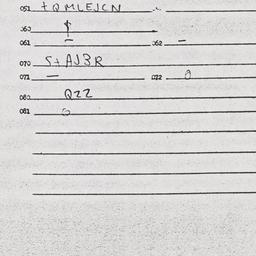 051 + Q M L E J C N
060
061 – 062 –
070 S + A J 3 R
071 – 072 0
080 Q Z Z
081